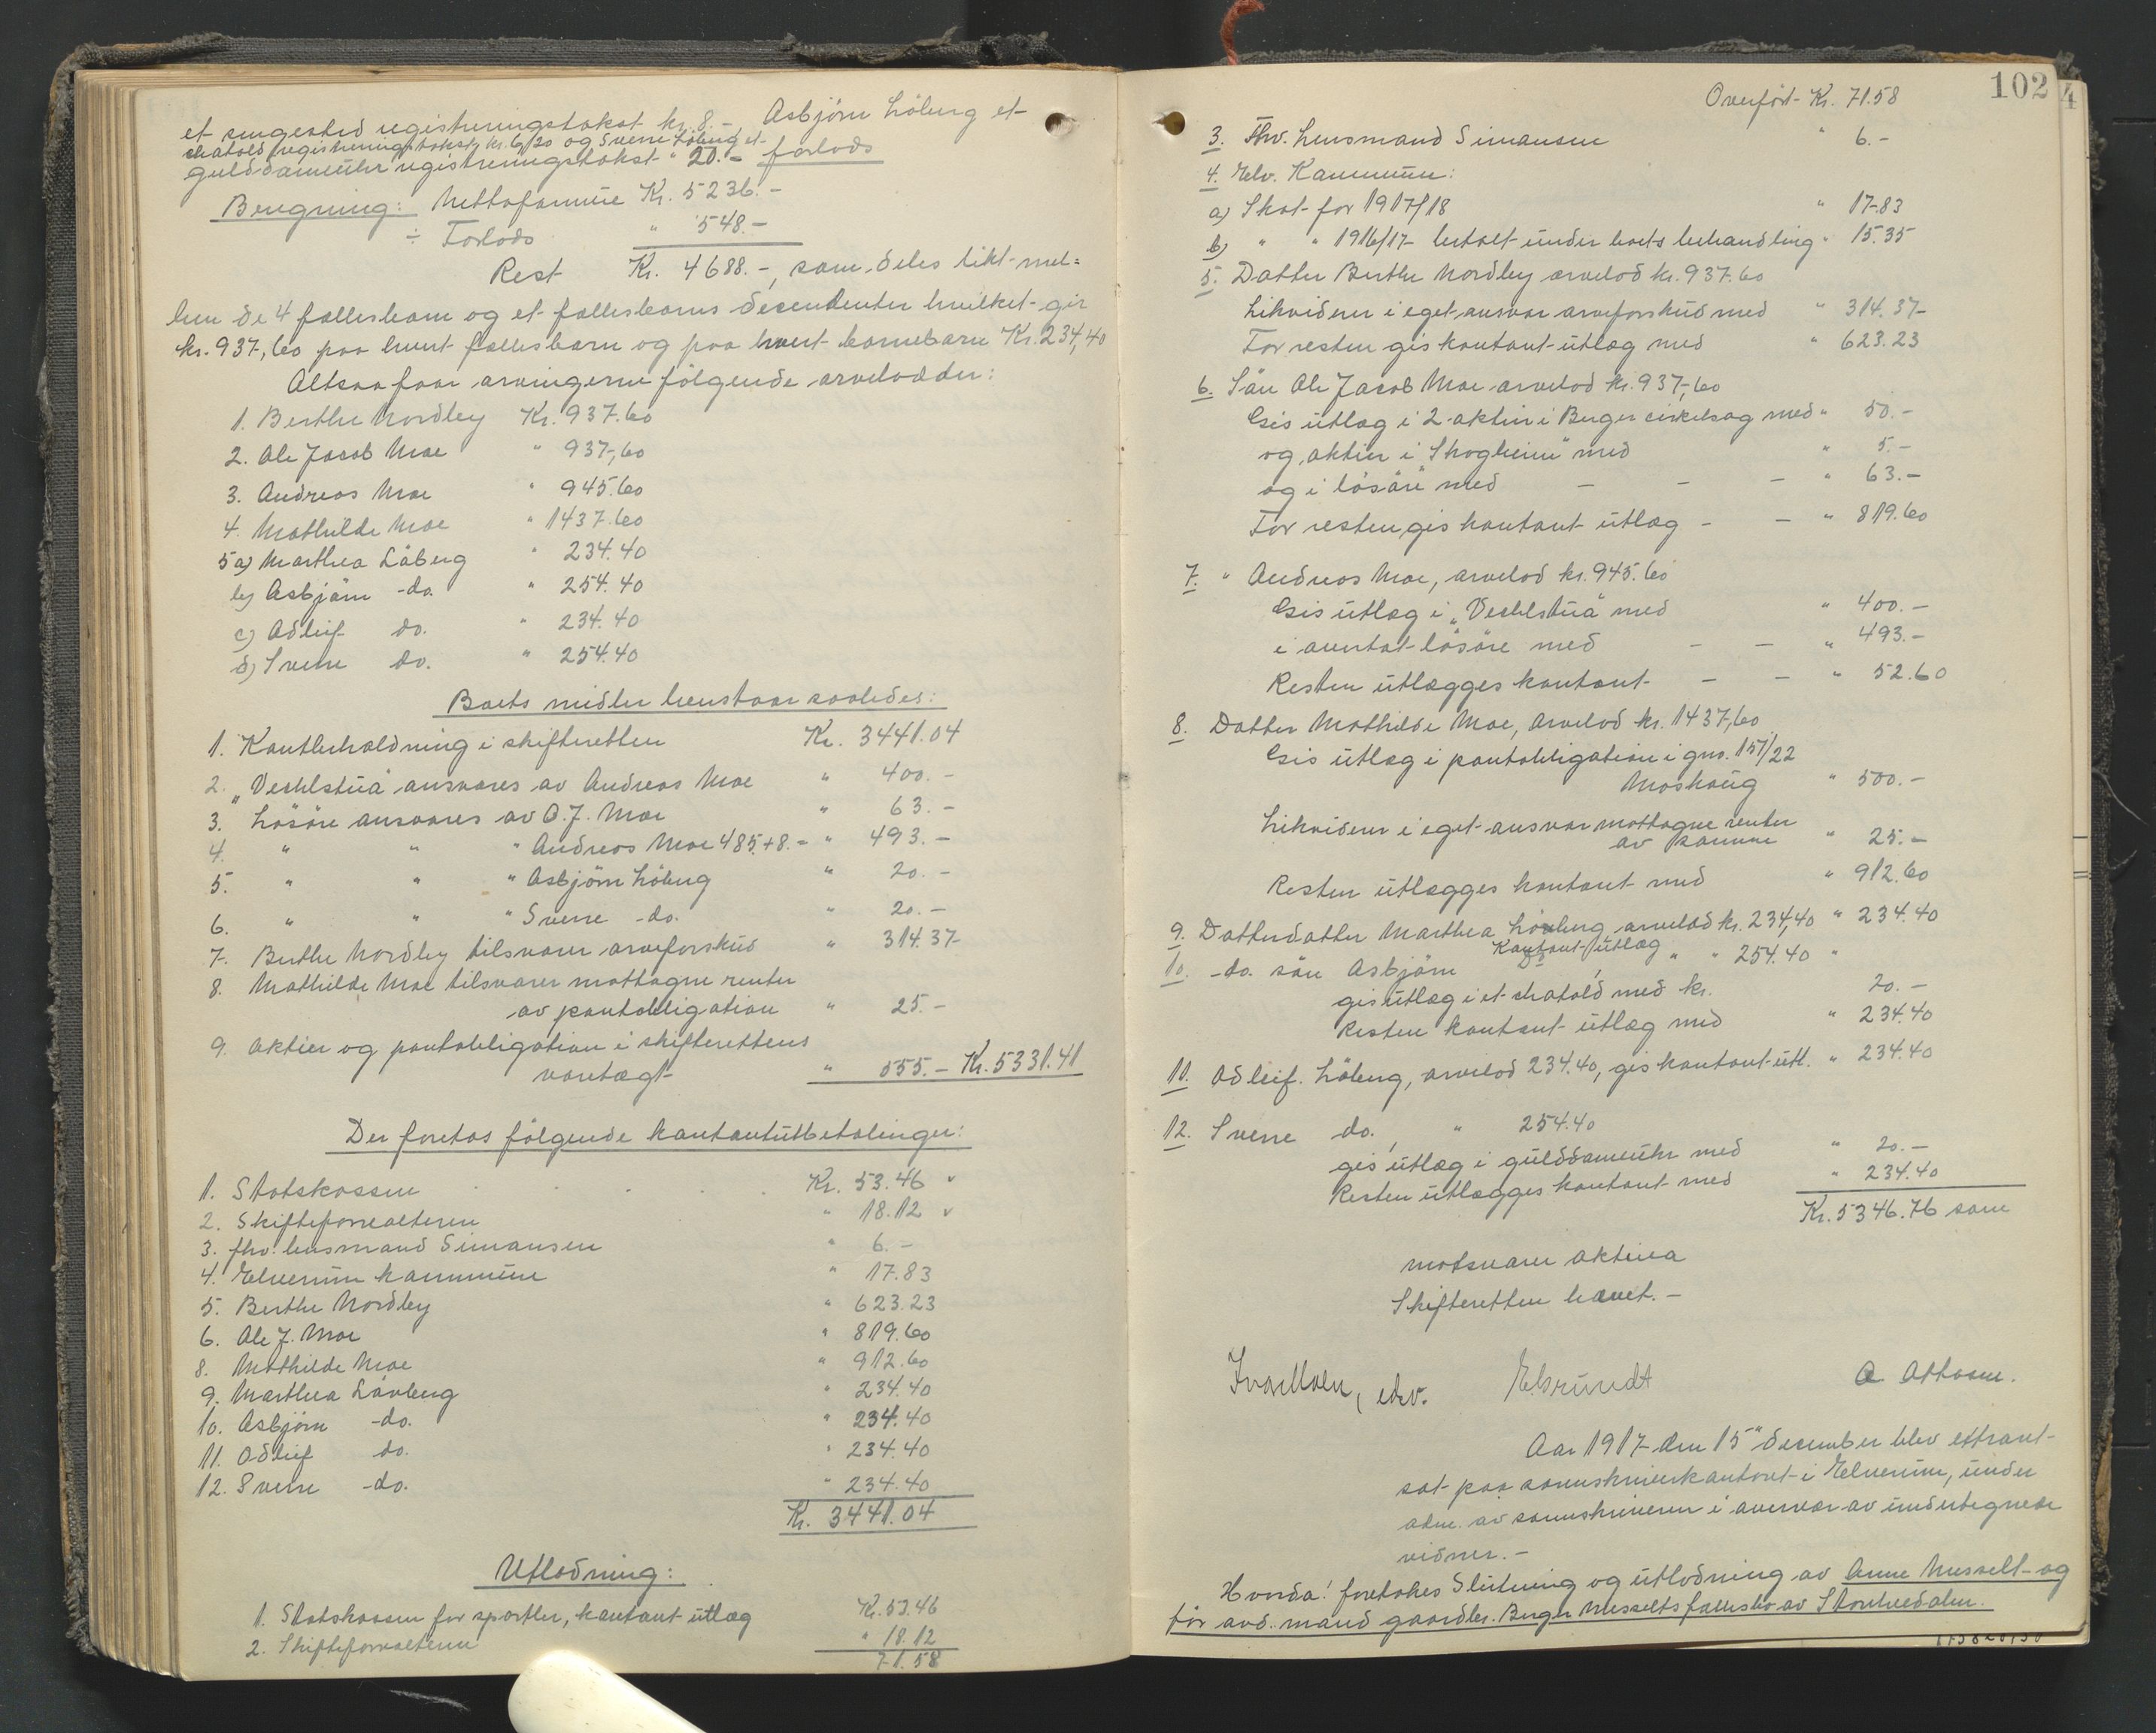 et sengested registreringstakst kr. 8.- Asbjörn Löberg et
chatold registreringstakst kr. 6,20 og Sverre Löberg et
gulddameuhr registreringstakst " 20.- forlods
Beregning: Nettoformue Kr. 5236.-
÷ Forlods " 548.-
Rest Kr. 4688.-, som deles likt mel=
lem de 4 fællesbarn og et fællesbarns decendenter hvilket gir
kr. 937,60 paa hvert fællesbarn og paa hvert barnebarn Kr. 234,40
Altsaa faar arvingerne fölgende arvelodder:
1. Berthe Nordby Kr. 937.60
2. Ole Jacob Moe " 937,60
3. Andreas Moe " 945.60
4. Mathilde Moe " 1437.60
5 a) Marthea Löberg " 234.40
b) Asbjörn -do. " 254.40
c) Adleif do. " 234.40
d) Sverre do. " 254.40
Boets midler henstaar saaledes:
1. Kontbeholdning i skifteretten Kr. 3441.04
2. "Veslestua" ansvares av Andreas Moe " 400.-
3. Lösöre ansvares av O. J. Moe " 63.-
4. " " " Andreas Moe 485.+8.- " 493.-
5. " " " Asbjörn Löberg " 20.-
6. " " " Sverre -do. " 20.-
7. Berthe Nordby tilsvarer arveforskud " 314.37
8. Mathilde Moe tilsvarer mottagne renter
av pantobligation " 25.-
9. Aktier og pantobligation i skifterettens
varetægt " 555.- Kr. 5331.41
Der foretas fölgende kontantutbetalinger:
1. Statskassen Kr. 53.46 "
2. Skifteforvalteren " 18.12 "
3. fhv. lensmand Simonsen " 6.-
4. Elverum kommune " 17.83
5. Berthe Nordby " 623.23
6. Ole J. Moe " 819.60
8. Mathilde Moe " 912.60
9. Marthea Lövberg " 234.40
10. Asbjörn -do. " 234.40
11. Odleif do. " 234.40
12. Sverre -do. " 234.40
Kr. 3441.04
Utlodning:
1. Statskassen for sportler, kontant utlæg Kr. 53.46
2. Skifteforvalteren " 18.12
71.58
102
4
Overfört Kr. 71.58
3. Fhv. Lensmand Simonsen " 6.-
4. Elv. Kommune:
a) Skat for 1917/18 " 17.83
b) " " 1916/17 betalt under boets behandling " 15.35
5. Datter Berthe Nordby arvelod kr. 937.60
Likviderer i eget ansvar arveforskud med " 314.37
For resten gis kontant utlæg med " 623.23
6. Sön Ole Jacob Moe arvelod kr. 937,60
Gis utlæg i 2 aktier i Berger cirkelsag med " 50.-
og aktier i "Skogheim" med " 5.-
og i lösöre med - - - " 63.-
For resten gis kontant utlæg - - " 819.60
7. " Andreas Moe, arvelod kr. 945.60
Gis utlæg i "Veslestua" med " 400.-
i avertat lösöre med - - " 493.-
Resten utlægges kontant - - " 52.60
8. Datter Mathilde Moe, arvelod kr. 1437,60
Gis utlæg i pantobligation i gno. 157/22
Moshaug " 500.-
Likviderer i eget ansvar mottagne renter
av samme " 25.-
Resten utlægges kontant med " 912.60
9. Datterdatter Marthea Lövberg arvelod kr. 234,40 " 234.40
Kontant utlæg
10. -do. sön Asbjörn Do " " 254.40 "
gis utlæg i et chatold med kr. 20.-
Resten kontant utlæg med " 234.40
11. Odleif Löberg, arvelod 234.40, gis kontant utl. " 234.40
12. Sverre do., " 254.40
gis utlæg i gulddameuhr med " 20.-
Resten utlægges kontant med " 234.40
Kr. 5346.76 som
motsvarer aktiva
Skifteretten hævet.-
Ivar Moen, edsv. E. Grundt O Ottosen.
Aar 1917 den 15" december blev extraret
sat paa sorenskriverkontoret i Elverum, under
adm. av sorenskriveren i overvær av undertegnede
vidner.-
Hvorda! foretokes Slutning og utlodning av Anne Messelt og
för avd. mand gaardbr. Berger Messelts fællesbo av Storelvedalen.